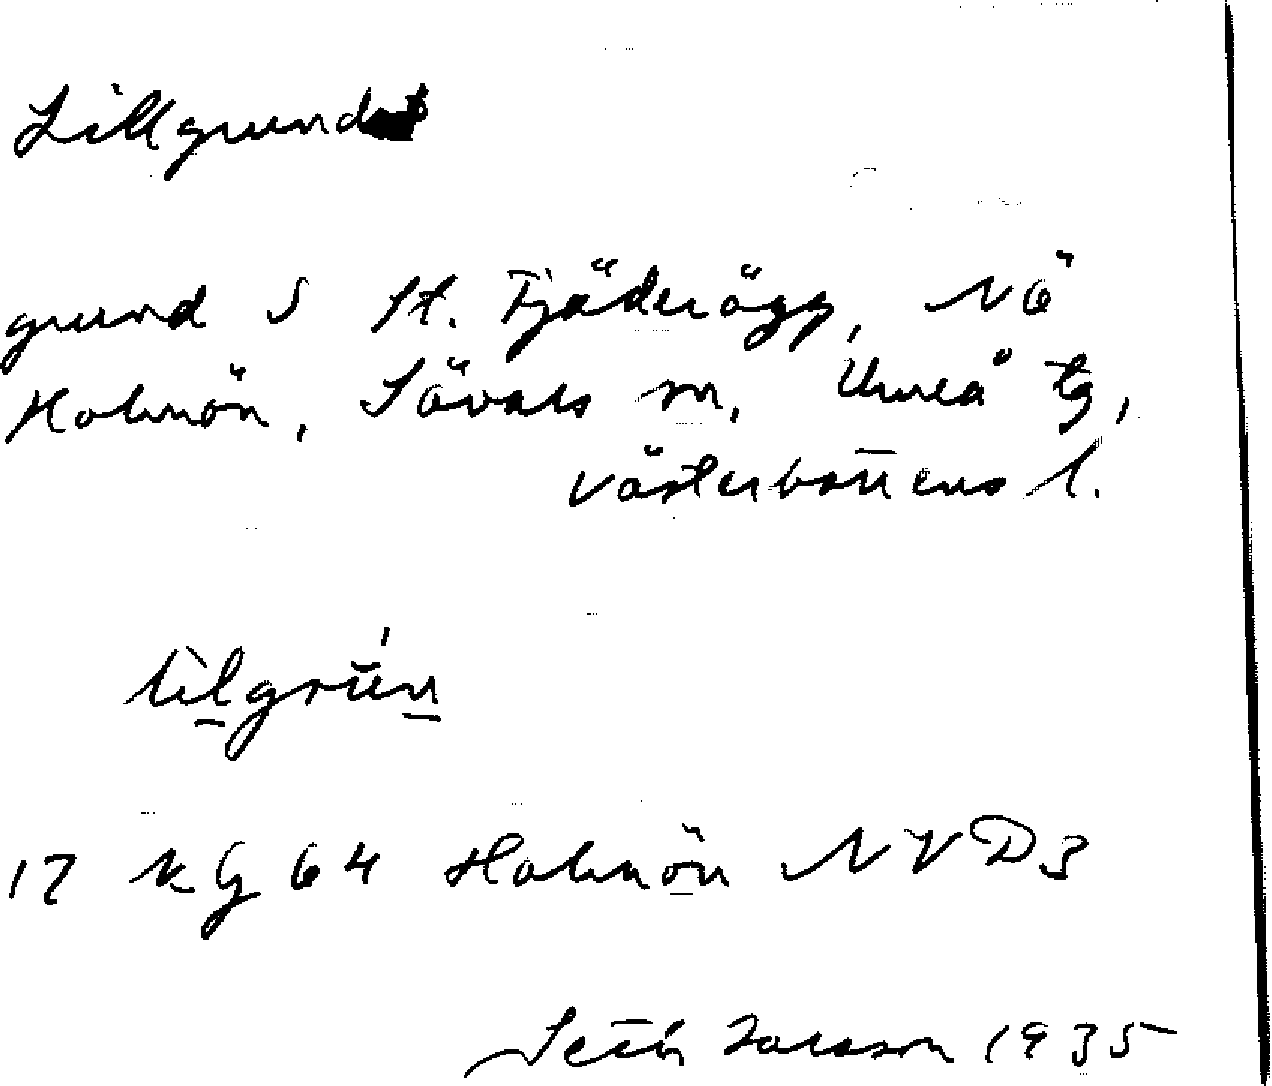 Lillgrundet
grund S St. Fjäderägg, NÖ
Holmön, Sävars sn, Umeå tg,
Västerbottens l.
lìlgrǘn
17 KG 64 Holmön NV D3
Seth Larsson 1935